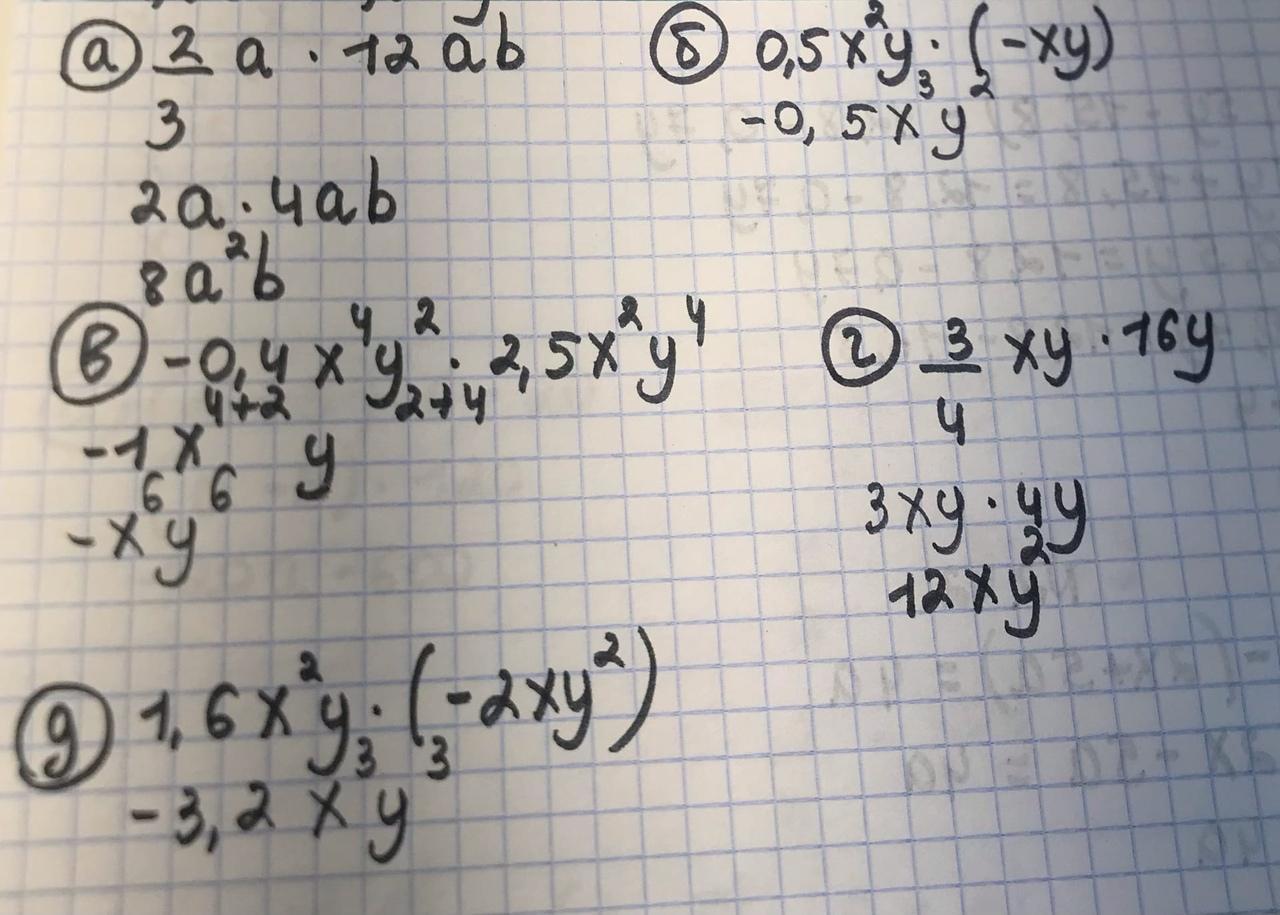 а) 2/3 a · 12ab
2a · 4ab
8a²b
б) 0,5x²y · (-xy)
-0,5x³y²
в) -0,4x⁴y² · 2,5x²y⁴
-1x⁴⁺² y²⁺⁴
-x⁶y⁶
г) 3/4 xy · 16y
3xy · 4y
12xy²
д) 1,6x²y · (-2xy²)
-3,2x³y³